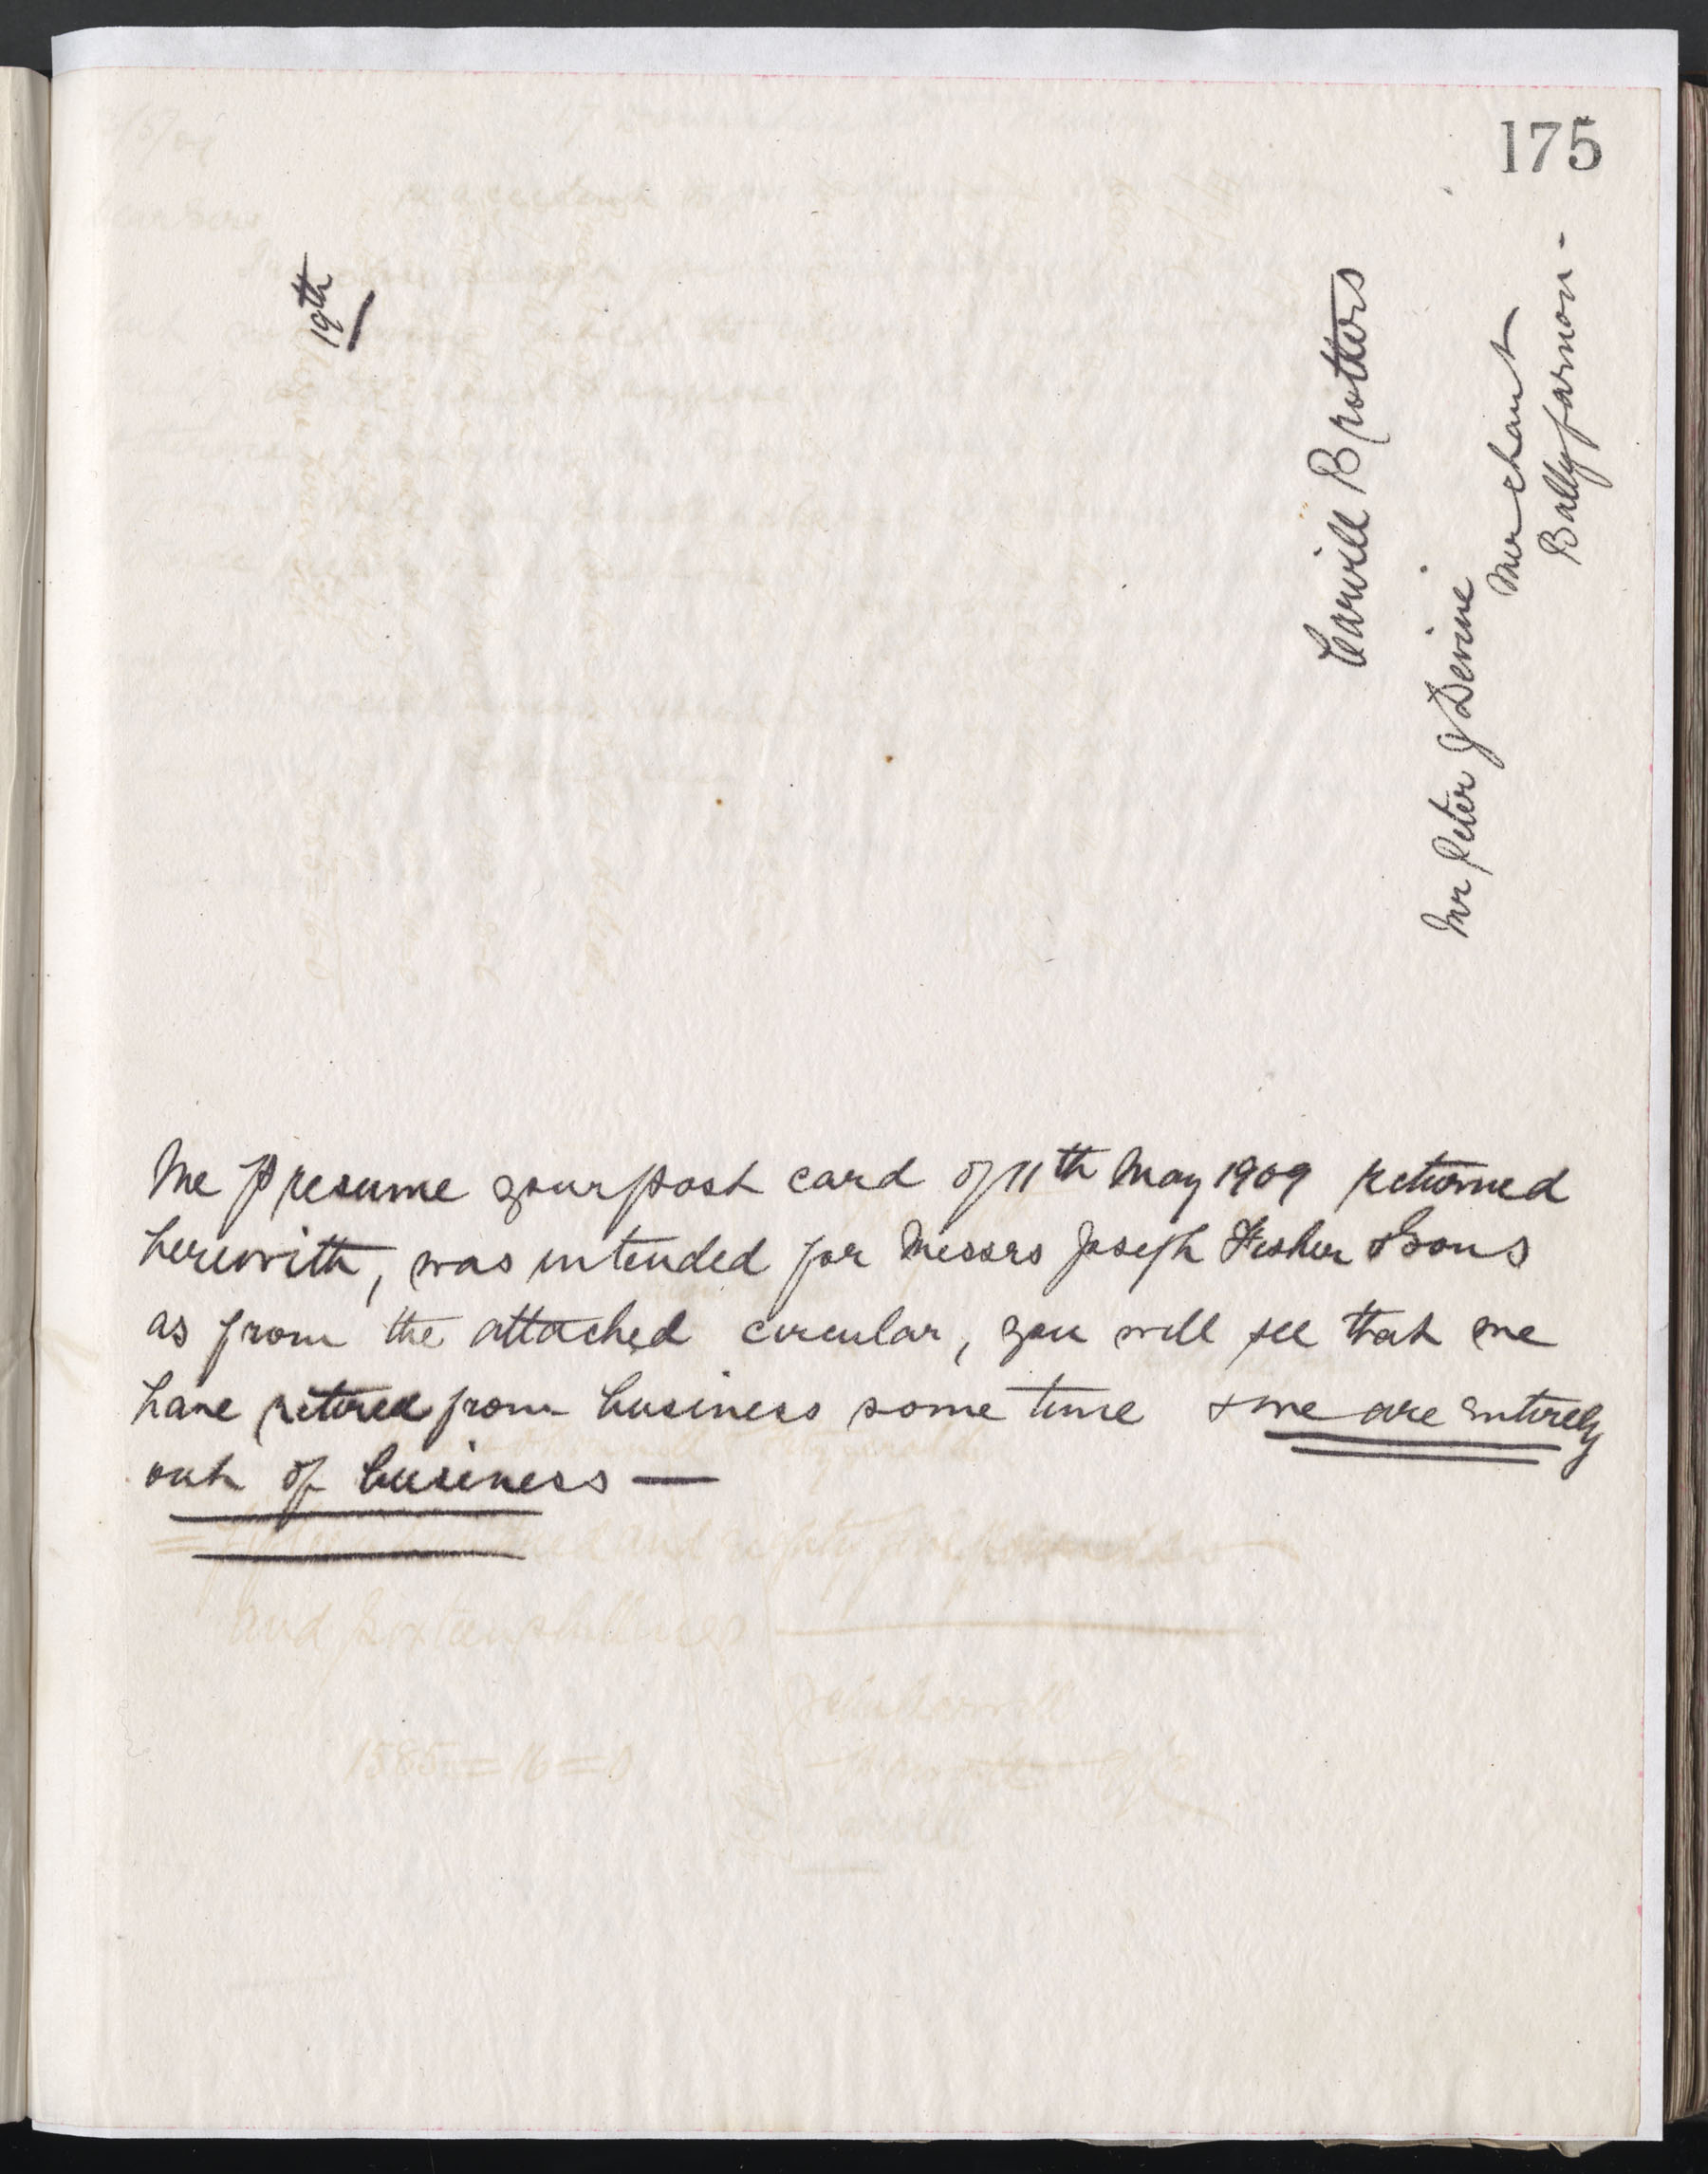 175
19th
Carvill Brothers
Mr Peter J Devine
Merchant
Ballyfarnon -
We presume your post card of 11th May 1909 returned
herewith, was intended for Messrs Joseph Fisher & Sons
as from the attached circular, you will see that we
have retired from business some time & we are entirely
out of business —
1585 = 16 = 0